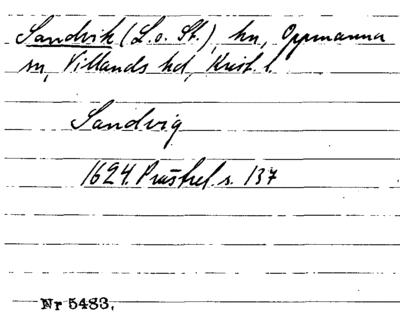 Sandvik (L. o. St.) hn, Oppmanna
sn, Villands hd, Krist. l.
Sandvig
1624. Prästrel. s. 137
Nr 5483.